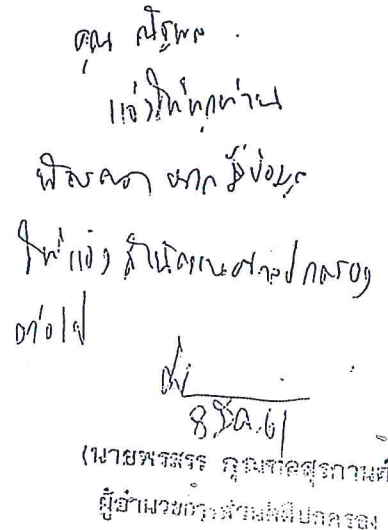 คุณ ณัฐพล
แจ้งให้ทุกท่าน
พิจารณา หากมีข้อมูล
ให้แจ้ง สำนักงานศาลปกครอง
ต่อไป
8 ธ.ค. 61
(นายพรสรร
ผู้อำนวยการส่วนคดีปกครอง